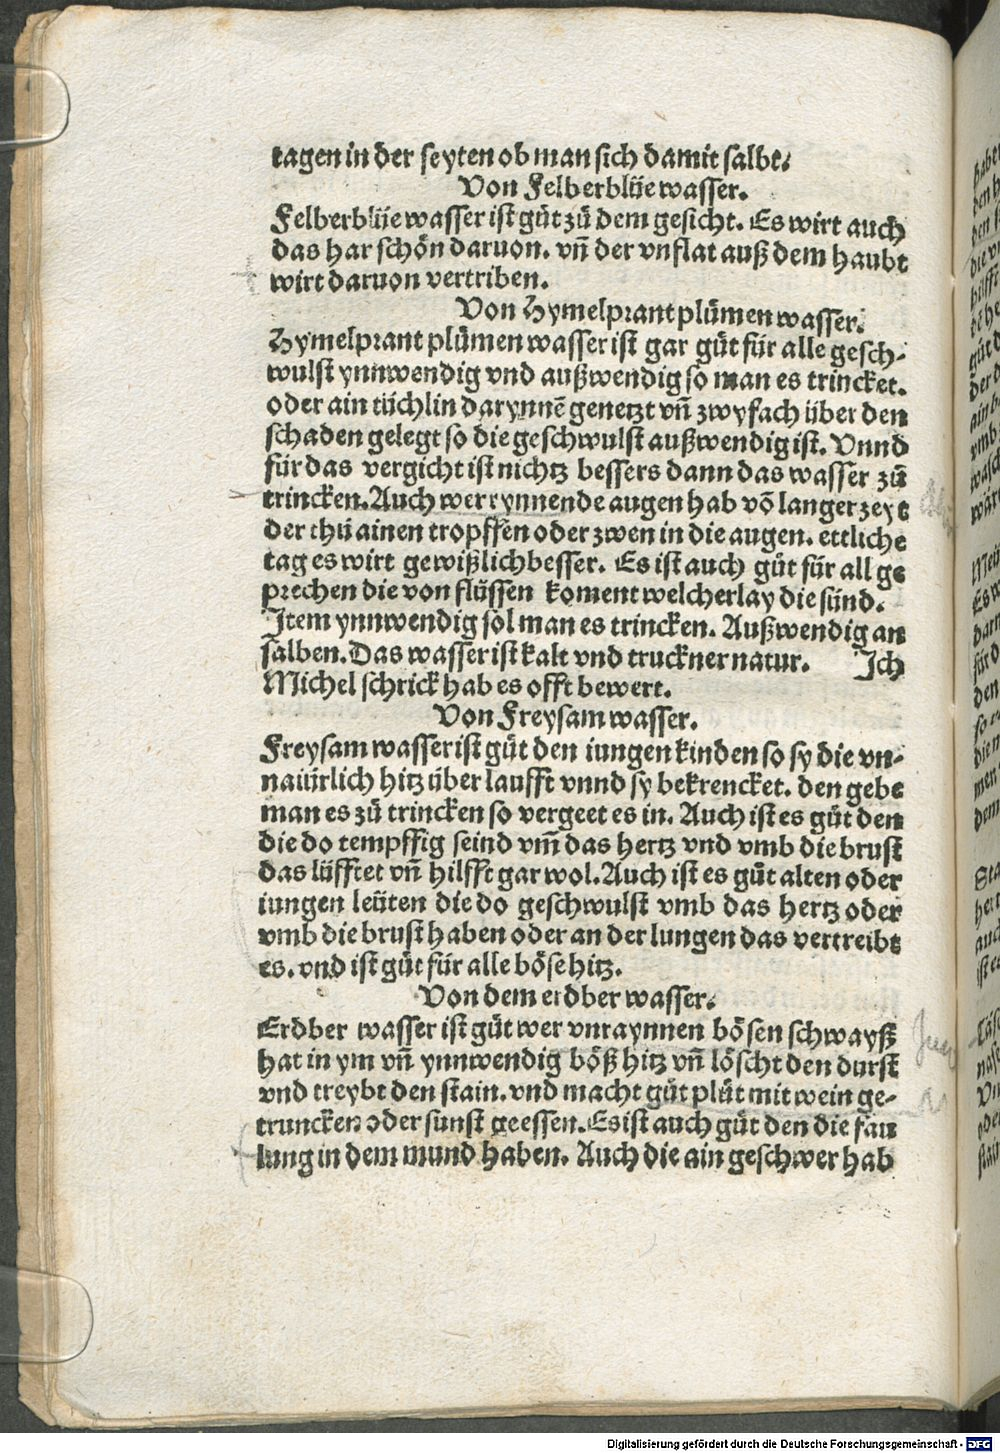 tagen in der seyten ob man sich damit salbt.
Von Felberblüe wasser.
Felberblüe wasser ist gůt zů dem gesicht. Es wirt auch
das har schön daruon. vñ der vnflat auß dem haubt
wirt daruon vertriben.
Von Hymelprant plůmen wasser.
Hymelprant plůmen wasser ist gar gůt für alle gesch-
wulst ynnwendig vnd außwendig so man es trincket.
oder ain tüchlin darynnē genetzt vñ zwyfach über den
schaden gelegt so die geschwulst außwendig ist. Vnnd
für das vergicht ist nichtz bessers dann das wasser zů
trincken. Auch wer rynnende augen hab vō langer zeyt
der thů ainen tropffen oder zwen in die augen. ettliche
tag es wirt gewißlich besser. Es ist auch gůt für all ge
prechen die von flüssen koment welcherlay die sünd.
Item ynnwendig sol man es trincken. Außwendig an
salben. Das wasser ist kalt vnd truckner natur. Ich
Michel schrick hab es offt bewert.
Von Freysam wasser.
Freysam wasser ist gůt den iungen kinden so sy die vn-
natürlich hitz über laufft vnnd sy bekrencket. den gebe
man es zů trincken so vergeet es in. Auch ist es gůt den
die do tempffig seind vm̄ das hertz vnd vmb die brust
das lüfftet vñ hilfft gar wol. Auch ist es gůt alten oder
iungen leüten die do geschwulst vmb das hertz oder
vmb die brust haben oder an der lungen das vertreibt
es. vnd ist gůt für alle böse hitz.
Von dem erdber wasser.
Erdber wasser ist gůt wer vnraynnen bösen schwayß
hat in ym vñ ynnwendig böß hitz vñ löscht den durst
vnd treybt den stain. vnd macht gůt plůt mit wein ge-
truncken oder sunst geessen. Es ist auch gůt den die fau
lung in dem mund haben. Auch die ain geschwer hab
Digitalisierung gefördert durch die Deutsche Forschungsgemeinschaft - DFG